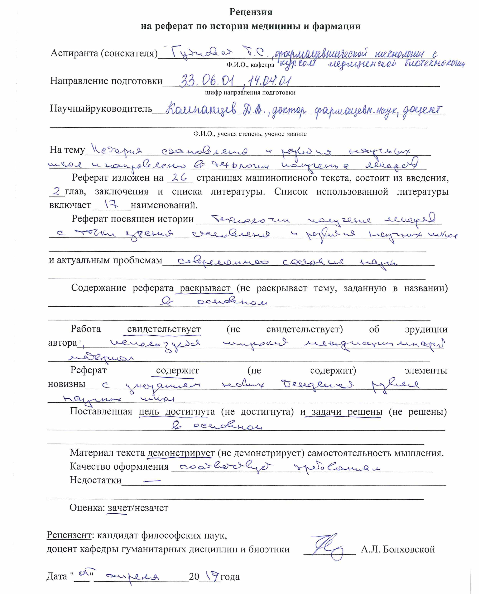 Рецензия
на реферат по истории медицины и фармации
Аспиранта (соискателя) фармацевтической технологии с
Ф.И.О., кафедра курсом медицинской биотехнологии
Направление подготовки 33.06.01, 14.04.01
шифр направления подготовки
Научный руководитель Д.А., доктор фармацевт. наук, доцент
Ф.И.О., ученая степень, ученое звание
На тему История становления и развития научных
школ и направлений в технологии лекарств
Реферат изложен на 26 страницах машинописного текста, состоит из введения,
2 глав, заключения и списка литературы. Список использованной литературы
включает 17 наименований.
Реферат посвящен истории технологии получения лекарств
с точки зрения становления и развития научных школ
и актуальным проблемам современного состояния науки
Содержание реферата раскрывает (не раскрывает тему, заданную в названии)
в основном
Работа свидетельствует (не свидетельствует) об эрудиции
автора, используется широкий междисциплинарный
материал
Реферат содержит (не содержит) элементы
новизны с новых
научных школ
Поставленная цель достигнута (не достигнута) и задачи решены (не решены)
в основном
Материал текста демонстрирует (не демонстрирует) самостоятельность мышления.
Качество оформления соответствует требованиям
Недостатки —
Оценка: зачет/незачет
Рецензент: кандидат философских наук,
доцент кафедры гуманитарных дисциплин и биоэтики А.Л. Болховской
Дата " апреля 2019 года